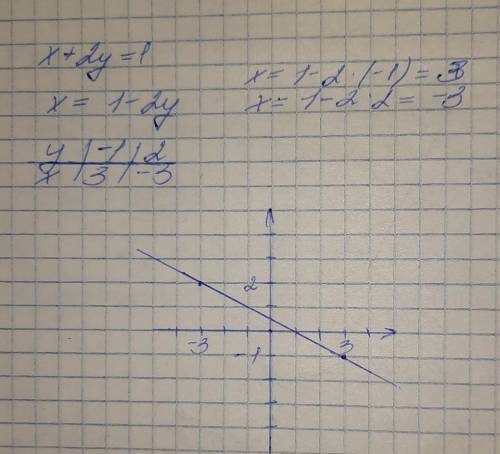 x+2y=1
x= 1-2y
x= 1-2·(-1)= 3
x= 1-2·2= -3
y | -1 | 2
x | 3 | -3
2
-3 3
-1